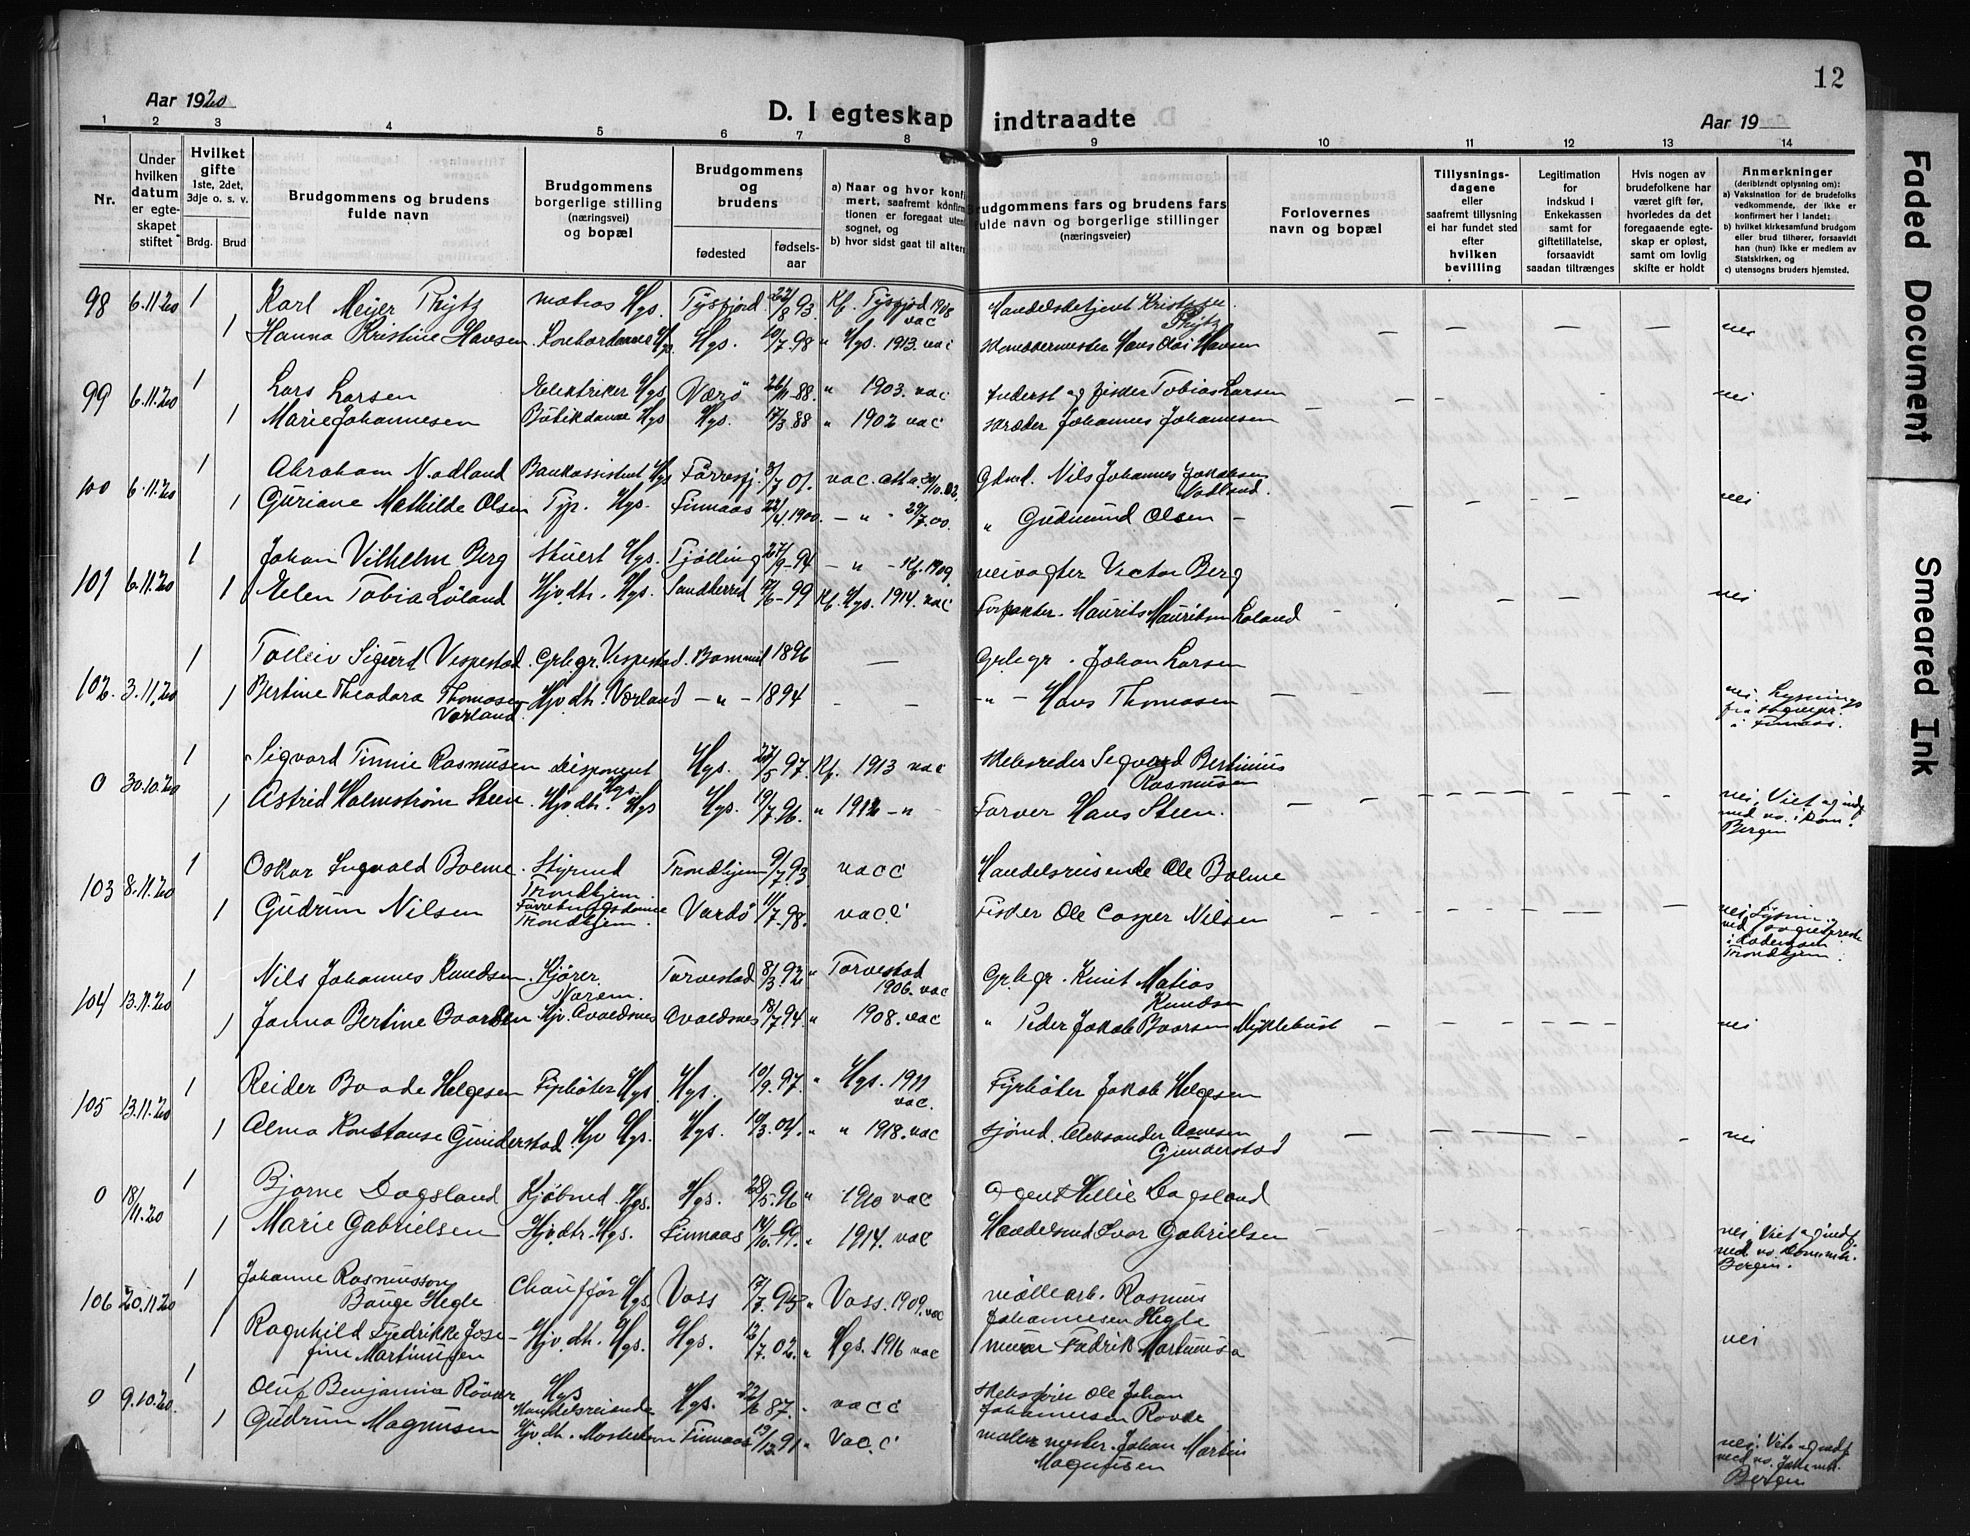 12
Aar 1920
D. I egteskap indtraadte
Aar 19
1 2 3 4 5 6 7 8 9 10 11 12 13 14
Nr.
Under hvilken datum er egteskapet stiftet
Hvilket gifte 1ste, 2det, 3dje o. s. v.
Brdg. Brud
Brudgommens og brudens fulde navn
Brudgommens borgerlige stilling (næringsvei) og bopæl
Brudgommens og brudens
fødested
fødselsaar
a) Naar og hvor konfirmert, saafremt konfirmationen er foregaat utenfor sognet, og
b) hvor sidst gaat til alters
Brudgommens fars og brudens fars fulde navn og borgerlige stillinger (næringsveier)
Forlovernes navn og bopæl
Tillysningsdagene eller saafremt tillysning ei har fundet sted efter hvilken bevilling
Legitimation for indskud i Enkekassen samt for giftetillatelse, forsaavidt saadan tiltrænges
Hvis nogen av brudefolkene har været gift før, hvorledes da det foregaaende egteskap er opløst, samt om lovlig skifte er holdt
Anmerkninger (deriblandt oplysning om):
a) Vaksination for de brudefolks vedkommende, der ikke er konfirmert her i landet;
b) hvilket kirkesamfund brudgom eller brud tilhører, forsaavidt han (hun) ikke er medlem av Statskirken, og
c) utensogns bruders hjemsted.
98 6.11.20 1 Karl Meijer Thijtz matros Hgs. Tysfjord 22/8 93 Kf. Tysfjod 1908 vac Handelsbetjent Kristen Thijtz
1 Hanna Kristine Hansen Hgs. 10/7 98 " Hgs. 1913. vac Hans Olai Hansen nei
99 6.11.20 1 Lars Larsen Elektriker Hgs Værö 26/11-88. " 1903. vac Inderst og fisker Tobias Larsen nei
1 Marie Johannesen Bütikdame Hgs Hgs. 17/3 88 " 1902 vac skræder Johannes Johannesen
100 6.11.20 1 Abraham Nadland Bankassistent Hgs Förresfj. 3/7 01. vac. att a. 30/10.02. Gdmd. Nils Johannes Jakobsen Nadland.
1 Guriane Mathilde Olsen Typ. Hgs. Finnaas 22/4 1900. - " - 29/7.00. " Gudmund Olsen nei
101 6.11.20 1 Johan Vilhelm Berg Stuert Hgs. Tjølling 27/9-94 - " - Kf. 1909. veivogter Victor Berg
1 Helen Tobia Löland Hjv.dtr. Hgs. Sandherred 6-99 Kf. Hgs. 1914. vac Forpakter. Maurits Mauritsen Loland nei
102. 3.11.20 1 Tolleiv Sigurd Vespestad Grbgr. Vespestad. Bommel 1896 - Grbgr. Johan Larsen
1 Bertine Theodora Thomasen Vorland. Hjv.dtr. Vorland - " - 1894 - " - Hans Thomasen nei. Lysnings fra sognepr. i Finnaas.
0 30.10.20 1 Sigvard Tinnie Rasmussen disponent Hgs. Hgs. 5 97. Kf. 1913 vac Skibsreder Sigvard Bertinius Rasmussen
1 Astrid Holmstrøm Steen Hjv.dtr. Hgs Hgs. 19/7.96. " 1912 - " - Farver Hans Steen. nei. Viet og indf ved no. i kom. Bergen
103 8.11.20 1 Oskar Ingvald Bolme Styrmd Trondhjem Trondhjem 9/7.93 vacc Handelsreisende Ole Bolme
1 Gudrun Nilsen Trondhjem. Vardö 11/7-98. vacc Fisker Ole Casper Nilsen nei. Trondhjem.
104 13.11.20 1 Nils Johannes Knudsen Kjörer. Norem. Torvestad 8/3.92 " Torvestad 1906. vac Grbgr. Knut Matias Knudsen
1 Janna Bertine Baardsen Hjv. Avaldsnes Avaldsnes 18/7 94. " 1908. vac " Peder Jakob Baarsen Myklebust nei
105 13.11.20 1 Reider Baade Helgesen Fyrböter Hgs. Hgs. 10/9.97. " Hgs. 1911 vac. Fyrböter Jakob Helgesen
1 Alma Konstanse Gunderstad. Hjv Hgs. Hgs. 3.01. " " 1918. vac sjömd. Aleksander Aanesen Gunderstad nei
0 18/11.20 1 Bjarne Dagsland Kjöbmd. Hgs. Hgs. 28/5.96 " 1910 vac Agent Dagsland
1 Marie Gabrielsen Hjv.dtr. Hgs. Finnaas 14/10-99. " 1914. vac Handelsmd Ivar Gabrielsen nei. Viet og indf. ved no. Bergen.
106 20.11.20 1 Johanne Rasmusson Bauge Hegle Chauffør Hgs. Voss 17/7. 95 " Voss. 1909. vac möllearb. Rasmus Johannesen Hegle
1 Ragnhild Fredrikke Josefine Martinussen Hjv.dtr. Hgs. Hgs. 12/7.02. " Hgs. 1916 vac murer Fredrik Martinussen nei
0 9.10.20. 1 Oluf Benjamin Rövær Hgs Handelsreisende Hgs. 22/6 87. vacc Ole Johan Johannesen
1 Gudrun Magnusen Hjv.dtr. Finnaas 13/12 91 " Vac.c Johan Martin Magnusen nei. Viet og indf ved no. Bergen
Faded Document
Smeared Ink